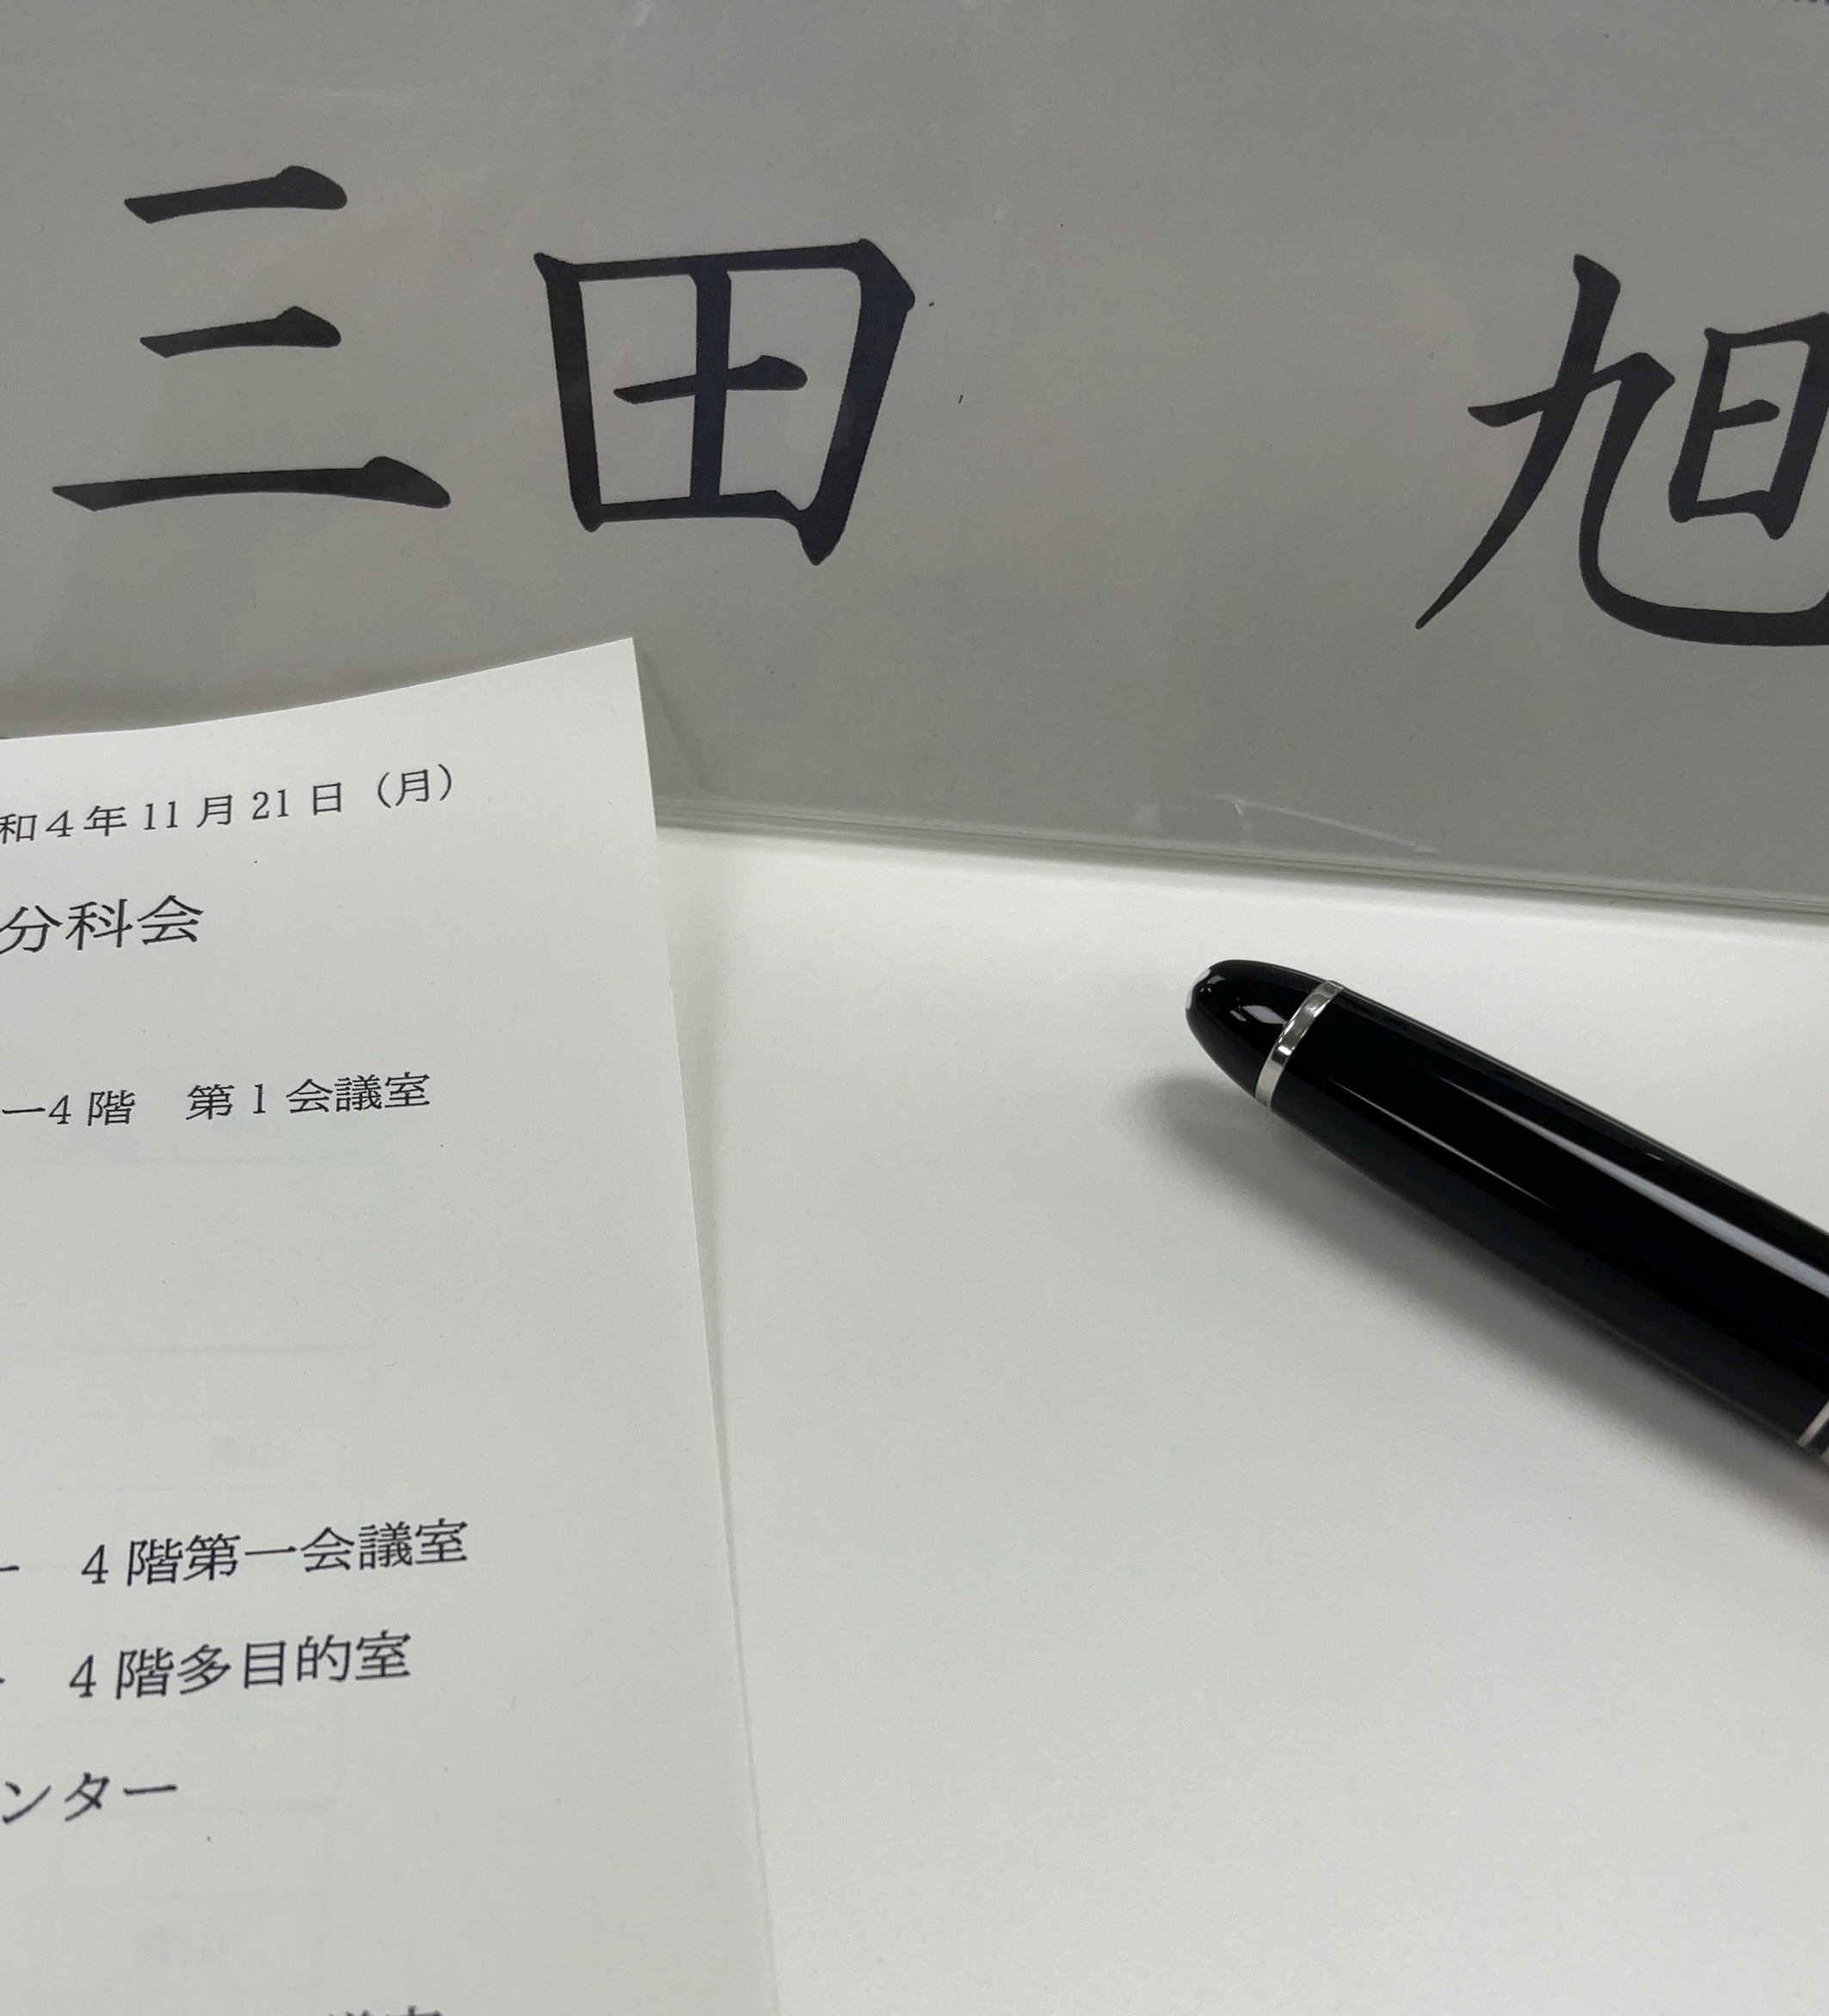 三田 旭
和４年 11 月 21 日（月）
分科会
ー4 階　第 1 会議室
ー　4 階第一会議室
4 階多目的室
ンター